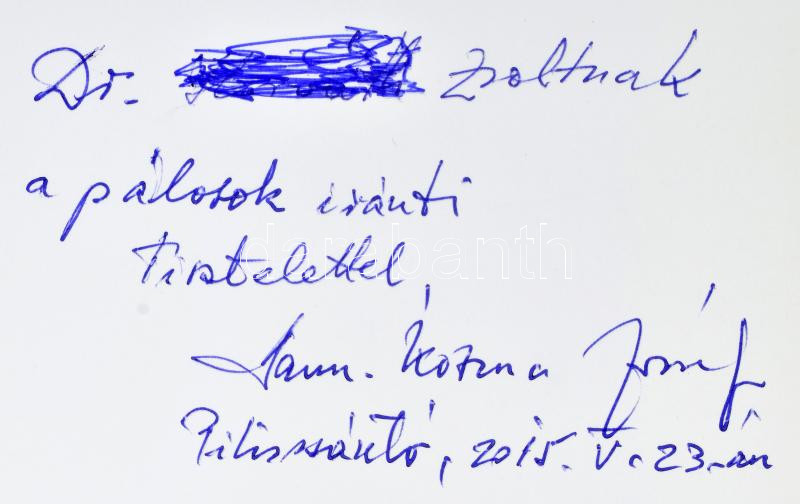 Dr. Zsoltnak
a pálosok iránti
tisztelettel,
Kozma József
Pilisszántó, 2015. V. 23.-án
darabanth